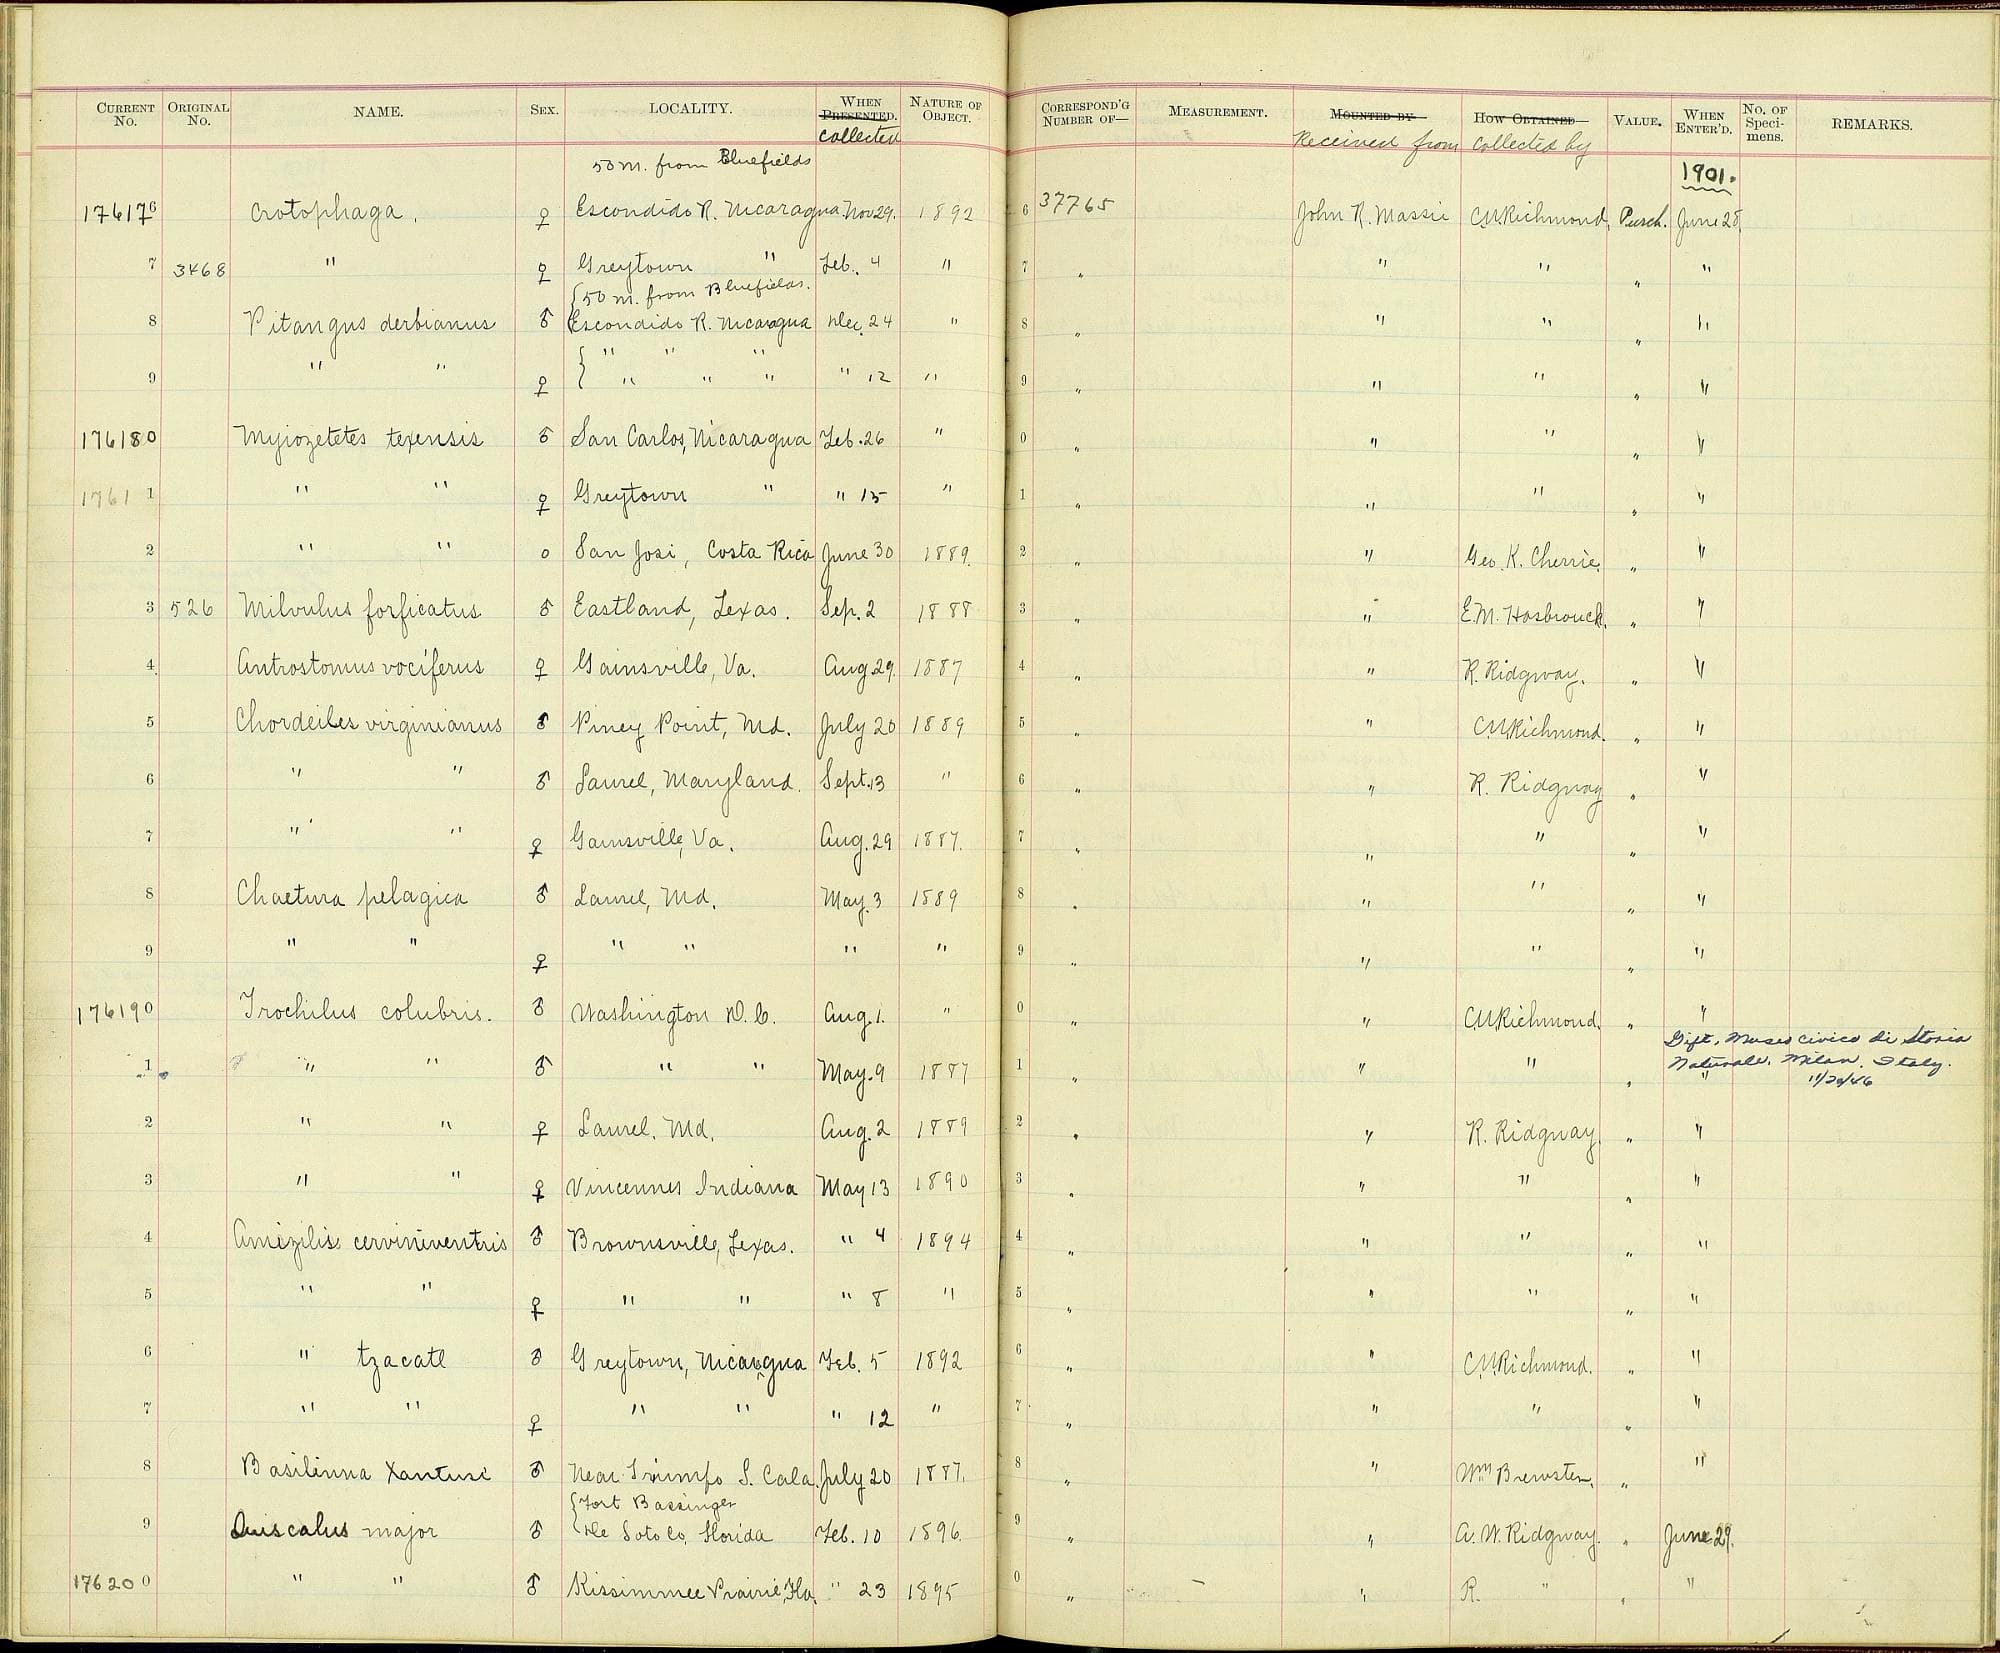 CURRENT No. ORIGINAL No. NAME. SEX. LOCALITY. WHEN PRESENTED. collected NATURE OF OBJECT. CORRESPOND'G NUMBER OF— MEASUREMENT. MOUNTED BY Received from HOW OBTAINED collected by VALUE. WHEN ENTER'D. No. OF Specimens. REMARKS.
50 m. from Bluefields 1901.
176176 Crotophaga. ♀ Escondido R. Nicaragua Nov 29. 1892 6 37765 John R. Massie C.W.Richmond, Purch. June 28,
7 3468 " ♀ Greytown " Feb. 4 " 7 " " " " "
{50 m. from Bluefields.
8 Pitangus derbianus ♂ Escondido R. Nicaragua Dec. 24 " 8 " " " " "
{ " " "
9 " " ♀ " " " " 12 " 9 " " " " "
176180 Myiozetetes texensis ♂ San Carlos, Nicaragua Feb. 26 " 0 " " " " "
1761 1 " " ♀ Greytown " " 15 " 1 " " " " "
2 " " o San Josi, Costa Rica June 30 1889. 2 " " Geo. K. Cherrie. " "
3 526 Milvulus forficatus ♂ Eastland, Texas. Sep. 2 1888 3 " " E.M. Hasbrouck. " "
4 Antrostomus vociferus ♀ Gainsville, Va. Aug 29. 1887 4 " " R. Ridgway. " "
5 Chordeiles virginianus ♂ Piney Point, Md. July 20 1889 5 " " C.W.Richmond. " "
6 " " ♂ Laurel, Maryland. Sept. 13 " 6 " " R. Ridgway " "
7 " " ♀ Gainsville, Va. Aug. 29 1887. 7 " " " " "
8 Chaetura pelagica ♂ Laurel, Md. May. 3 1889 8 " " " " "
9 " " ♀ " " " " 9 " " " " "
176190 Trochilus colubris. ♂ Washington D.C. Aug. 1. " 0 " " C.W.Richmond. " "
Gift, Museo civico di Storia
1 " " ♂ " " May. 9 1887 1 " " " " " Naturale, Milan, Italy.
11/20/46
2 " " ♀ Laurel, Md. Aug. 2 1889 2 " " R. Ridgway. " "
3 " " ♀ Vincennes Indiana May 13 1890 3 " " " " "
4 Amizilis cerviniventris ♂ Brownsville, Texas. " 4 1894 4 " " " " "
5 " " ♀ " " " 8 " 5 " " " " "
6 " tzacatl ♂ Greytown, Nicaragua Feb. 5 1892 6 " " C.W.Richmond. " "
7 " " ♀ " " " 12 " 7 " " " " "
8 Basilinna Xantusi ♂ Near Triumfo S. Cala. July 20 1887. 8 " " Wm Brewster. " "
{Fort Bassinger
9 Quiscalus major ♂ De Soto Co, Florida Feb. 10 1896. 9 " " A. W. Ridgway. " June 29.
176200 " " ♂ Kissimmee Prairie, Fla. " 23 1895 0 " " R. " " "